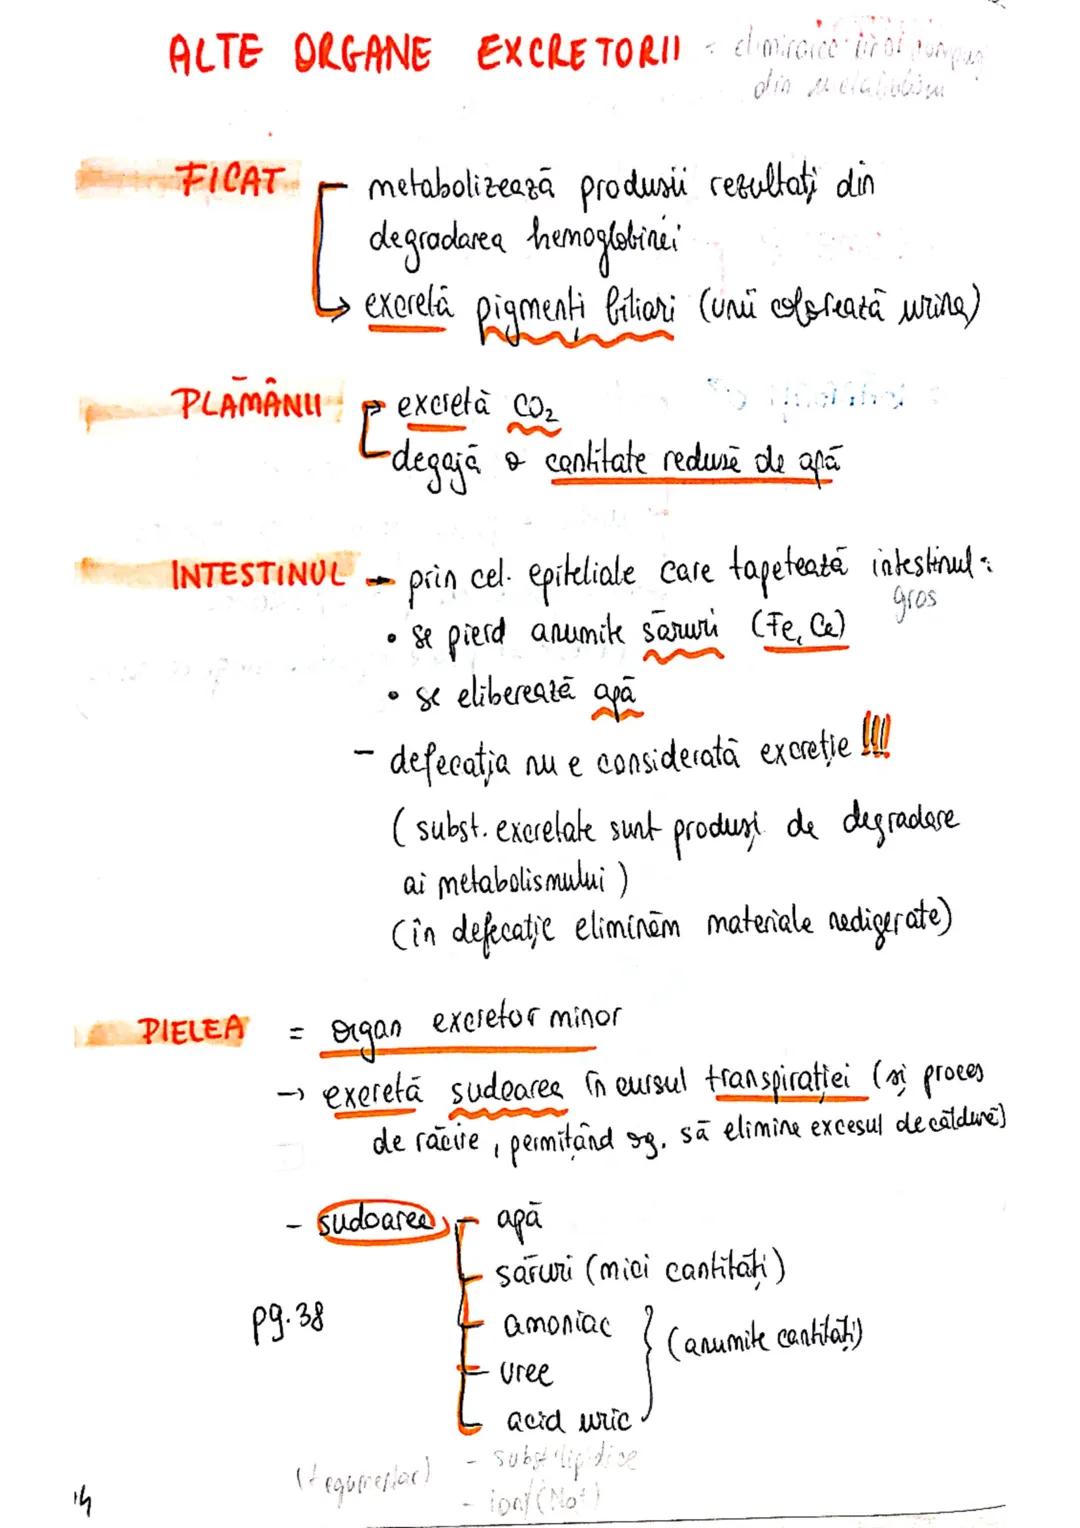 ALTE ORGANE EXCRETORII = eliminarea
din metabolism
FICAT
metabolizează produsii rezultați din
degradarea hemoglobinei
excretă pigmenți biliari (unii colorează urina)
PLĂMÂNII
excretă CO₂
degajă o cantitate redusă de apă
INTESTINUL → prin cel. epiteliale care tapetează intestinul:
gros
• se pierd anumite săruri (Fe, Ca)
• se eliberează apă
- defecația nu e considerată excreție !!!
(subst. excretate sunt produși de degradare
ai metabolismului)
(în defecație eliminăm materiale nedigerate)
PIELEA = organ excretor minor
→ excretă sudoarea în cursul transpirației (și proces
de răcire, permițând og. să elimine excesul de căldură)
- sudoarea
apă
săruri (mici cantități)
pg. 38
amoniac
(anumite cantități)
uree
acid uric
(tegumentar)
- subst lipidice
- ioni (Na⁺)
14